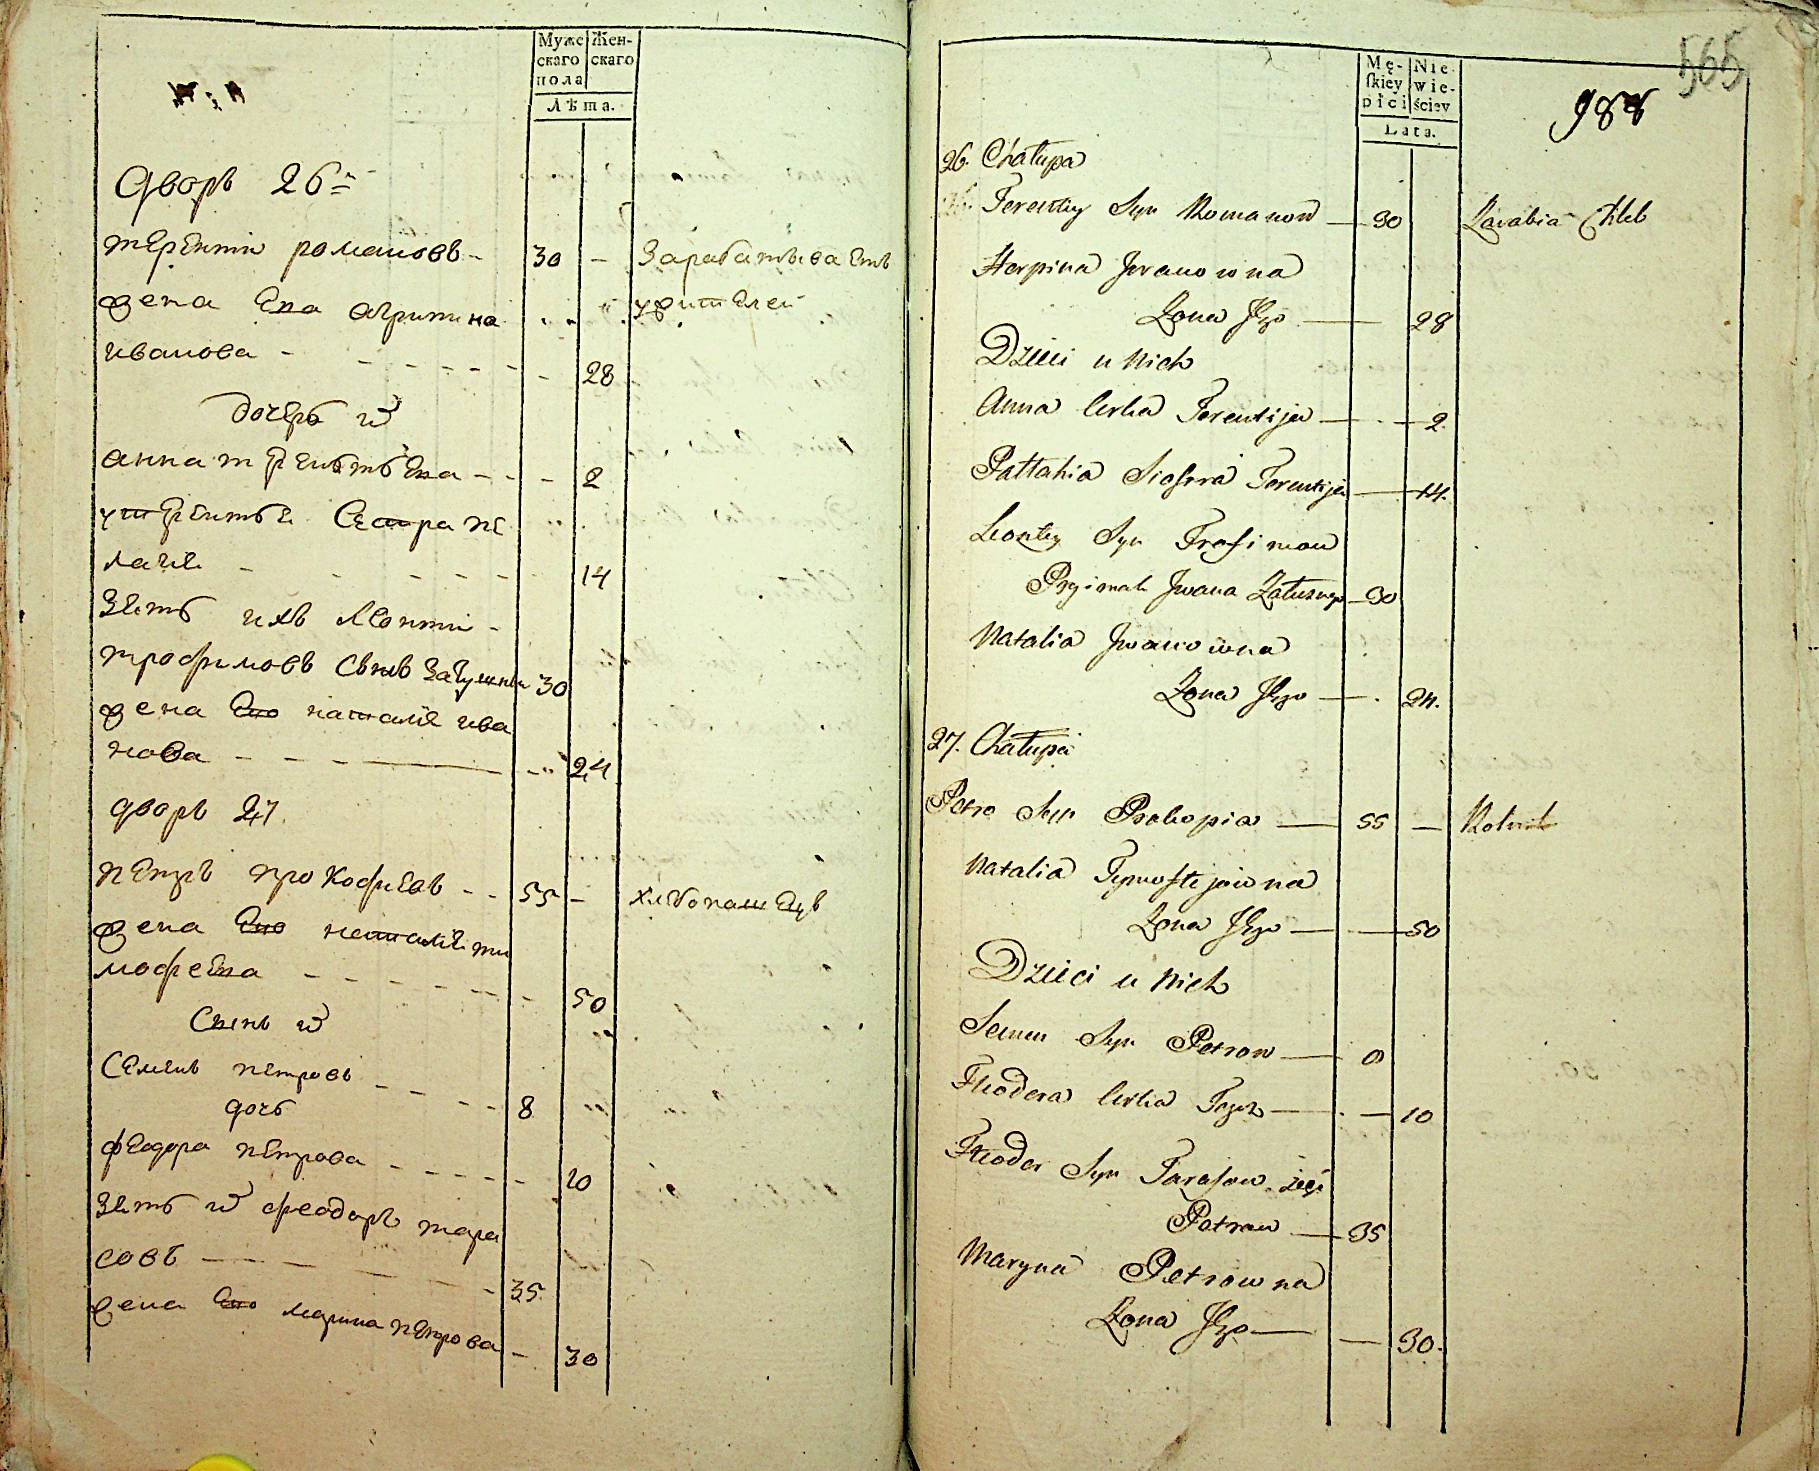 Муже Жен-
скаго скаго
пола
Лѣта.
дворъ 26й
терентіи романовъ - 30 - Зарабатываетъ
жена Ево агрипина
иванова - 28
дочерь ѿ
анна терентьева - 2
у терентья Сестра пе
лагея - 14
Зять ихъ Леонтіи -
трофимовъ Сынъ 30
жена Ево наталія ива
нова - 24
дворъ 27.
петръ прокофьевъ - 55 - хлѣбопашецъ
жена Ево наталія ти
мофевна - 50
Сынъ ѿ
Семенъ петровъ - 8
дочь
феодора петрова - 10
Зять ѿ феодоръ тара
совъ - 35
жена Ево марина петрова - 30
565
988
Mę- Nie
skiey wie-
płci ściey
Lata.
26. Chałupa
Terentiy Syn Romanow — 30 Zarabia Chleb
Horpina Jwanowna
Żona Jego — 28
Dzieci u Nich
Anna Corka Terentija — 2
Pallahia Siostra Terentija — 14.
Leontiy Syn Trofimow
Pryimak Jwana — 30
Natalia Jwanowna
Żona Jego — 24.
27. Chałupa
Petro Syn Prokopia — 55 — Rolnik
Natalia Tymofiejowna
Żona Jego — 50
Dzieci u Nich
Semen Syn Petrow — 8
Fheodora Corka Tegoż — 10
Fheodor Syn Tarasow zięć
Petrow — 35
Maryna Petrowna
Żona Jego — 30.